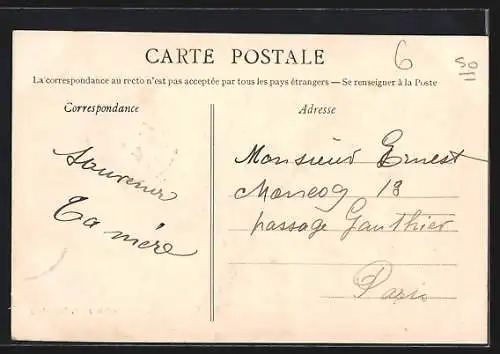 CARTE POSTALE
6
50
La correspondance au recto n'est pas acceptée par tous les pays étrangers — Se renseigner à la Poste
Correspondance
Adresse
Souvenir
Ta mère
Monsieur Ernest
18
passage Gauthier
Paris